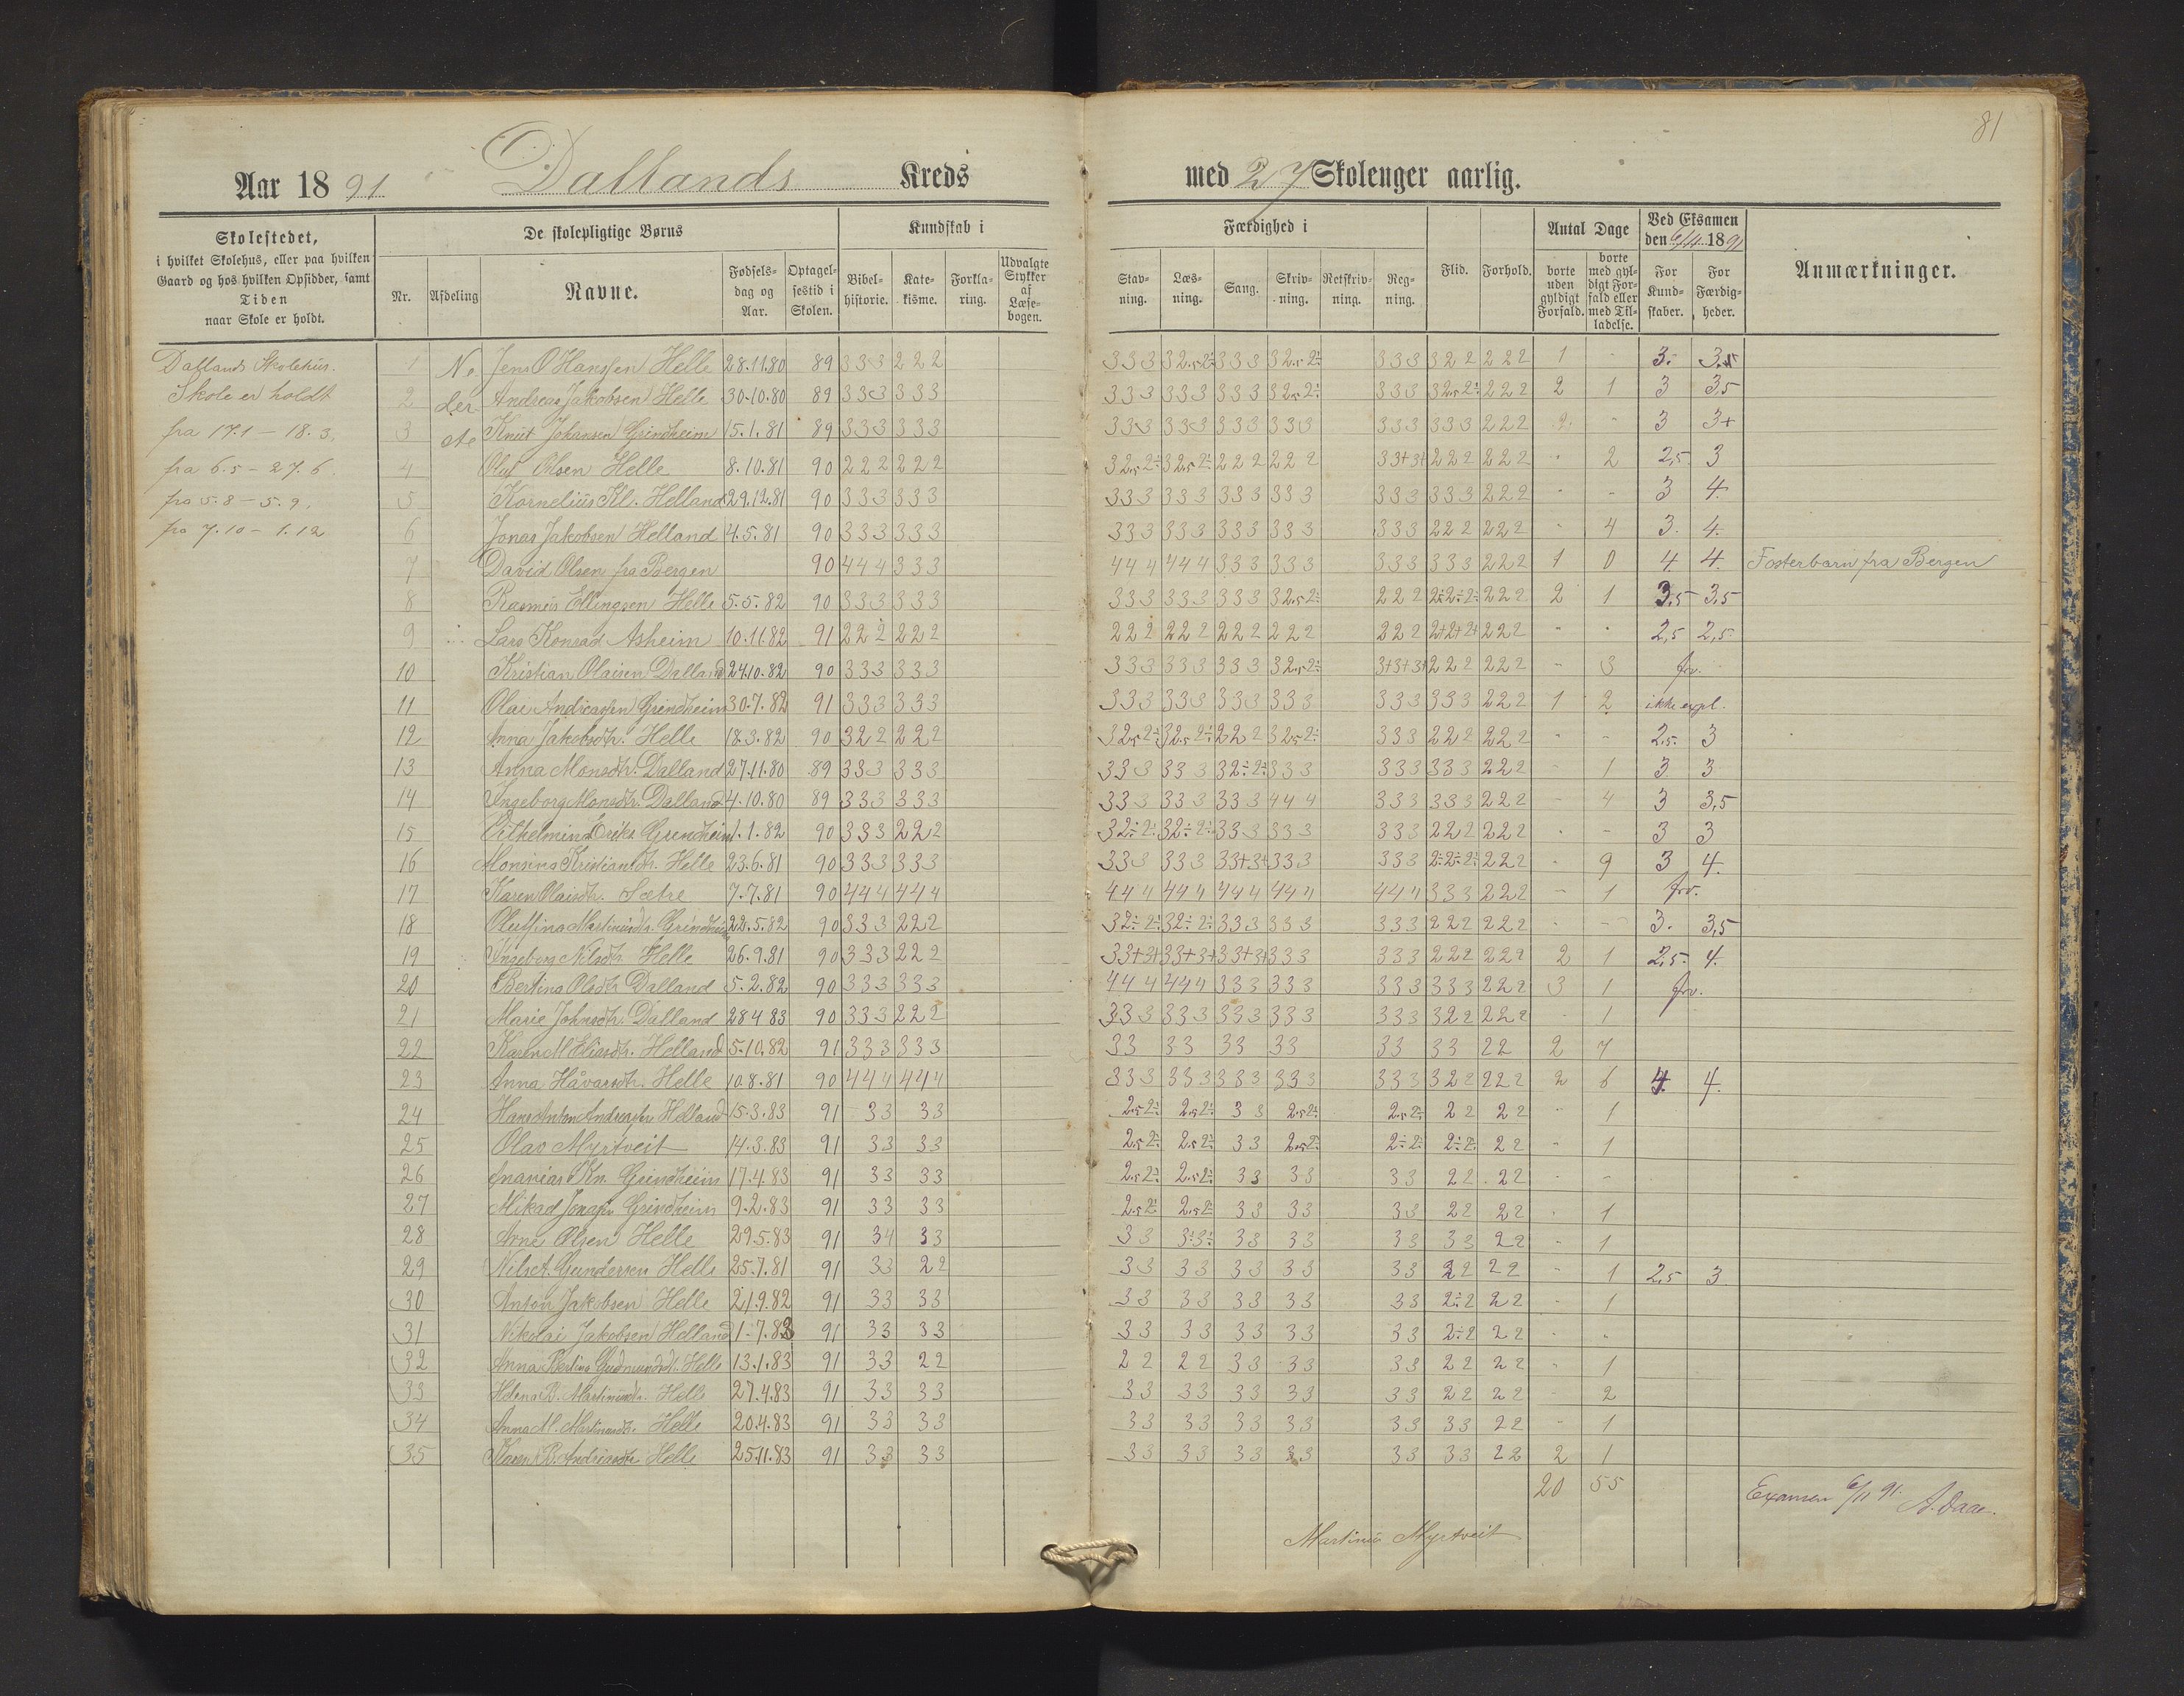 81
Aar 1891 Dallands Kreds med 27 Skolenger aarlig.
Skolestedet,
i hvilket Skolehus, eller paa hvilken
Gaard og hos hvilken Opsidder, samt
Tiden
naar Skole er holdt.
De skolepligtige Børns
Nr. Afdeling Navne. Fødsels-dag og Aar. Optagel-sestid i Skolen.
Kundskab i
Bibel-historie. Kate-kisme. Forkla-ring. Udvalgte Stykker af Læse-bogen.
Færdighed i
Stav-ning. Læs-ning. Sang. Skriv-ning. Retskriv-ning. Reg-ning. Flid. Forhold.
Antal Dage
borte uden gyldigt Forfald. borte med gyl-digt For-fald eller med Til-ladelse.
Ved Eksamen
den 6/11 1891
For Kund-skaber. For Færdig-heder.
Anmærkninger.
Dallands Skolehus.
Skole er holdt
fra 17.1 - 18.3.
fra 6.5 - 27.6.
fra 5.8 - 5.9.
fra 7.10 - 1.12
Ne der ste
1 Jens O Hanssen Helle 28.11.80 89 333 222 333 32.52÷ 333 32.52÷ 333 322 222 1 - 3. 3.5
2 Andreas Jakobsen Helle 30.10.80 89 333 333 333 333 333 32.52÷ 333 32.52÷ 222 2 1 3 3,5
3 Knut Johansen Grindheim 15.1.81 89 333 333 333 333 333 333 333 333 222 2 - 3 3+
4 Olaf Olsen Helle 8.10.81 90 222 222 32.52÷ 32.52÷ 222 222 33+3+ 222 222 - 2 2,5 3
5 Kornelius Kl. Helland 29.12.81 90 333 333 333 333 333 333 333 333 222 - - 3 4.
6 Jonas Jakobsen Helland 4.5.81 90 333 333 333 333 333 333 333 222 222 - 4 3. 4.
7 David Olsen fra Bergen 90 444 333 444 444 333 333 333 333 222 1 0 4 4. Fosterbarn fra Bergen
8 Rasmus Ellingsen Helle 5.5.82 90 333 333 333 333 333 32.52÷ 222 2÷2÷2÷ 222 2 1 3,5 3,5
9 Lars Konrad Asheim 10.11.82 91 222 222 222 222 222 222 222 2+2+2+ 222 - - 2,5 2,5
10 Kristian Olaisen Dalland 24.10.82 90 333 333 333 333 333 32.52÷ 3+3+3+ 222 222 - 3 frv.
11 Olai Andreassen Grindheim 30.7.82 91 333 333 333 333 333 333 333 333 222 1 2
12 Anna Jakobsdtr. Helle 18.3.82 90 322 222 32.52÷ 32.52÷ 222 32.52÷ 333 222 222 - - 2,5. 3
13 Anna Monsdtr. Dalland 27.11.80 89 333 333 333 333 32÷2÷ 333 333 333 222 - 1 3 3
14 Ingeborg Monsdtr. Dalland 4.10.80 89 333 333 333 333 333 444 333 333 222 - 4 3 3,5
15 Vilhelmina Eriks Grindheim 1.1.82 90 333 222 32÷2÷ 32÷2÷ 333 333 333 222 222 - - 3 3
16 Monsina Kristiansdtr. Helle 23.6.81 90 333 333 333 333 33+3+ 333 333 2÷2÷2÷ 222 - 9 3 4.
17 Karen Olaisdtr. Sætre 7.7.81 90 444 444 444 444 444 444 444 333 222 - 1 frv.
18 Oluffina Martinusdtr. Grindheim 22.5.82 90 333 222 32÷2÷ 32÷2÷ 333 333 333 222 222 - - 3. 3,5
19 Ingeborg Nilsdtr. Helle 26.9.81 90 333 222 33+3+ 33+3+ 33+3+ 333 333 222 222 2 1 2,5. 4.
20 Bertina Olsdtr. Dalland 5.2.82 90 333 333 444 444 333 333 333 333 222 3 1 frv.
21 Marie Johnsdtr. Dalland 28.4.83 90 333 222 333 333 333 333 333 322 222 - 1
22 Karen M Eliasdtr. Helland 5.10.82 91 333 333 33 33 33 33 33 33 22 2 7
23 Anna Håvarsdtr. Helle 10.8.81 90 444 444 333 333 333 333 333 322 222 2 6 4. 4.
24 Hans Anton Andreassen Helland 15.3.83 91 33 33 2.52÷ 2.52÷ 33 2.52÷ 2.52÷ 22 22 - 1
25 Olav Myrtveit 14.3.83 91 33 33 2.52÷ 2.52÷ 33 2.52÷ 2÷2÷ 2÷2÷ 22 - 1
26 Ananias Kn. Grindheim 17.4.83 91 33 33 2.52÷ 2.52÷ 33 33 33 22 22 - -
27 Mikad Jonass Grindheim 9.2.83 91 33 33 2.52÷ 2.52÷ 33 33 33 22 22 - 1
28 Arne Olsen Helle 29.5.83 91 34 33 33 3÷3÷ 33 33 33 33 22 - 1
29 Nils A. Gundersen Helle 25.7.81 91 33 22 33 33 33 33 33 22 22 - 1 2,5 3
30 Anton Jakobsen Helle 21.9.82 91 33 33 33 33 33 33 33 2÷2 22 - 1
31 Nikolai Jakobsen Helland 1.7.83 91 33 33 33 33 33 33 33 2÷2 22 - -
32 Anna Bertina Gudmundsdtr. Helle 13.1.83 91 33 22 22 22 33 33 33 22 22 - 1
33 Helena B. Martinusdtr. Helle 27.4.83 91 33 33 33 33 33 33 33 22 22 - 2
34 Anna M. Martinusdtr. Helle 20.4.83 91 33 33 33 33 33 33 33 33 22 - 1
35 Karen B. Andreasdtr. Helle 25.11.83 91 33 33 33 33 33 33 33 33 22 2 1
20 55
Examen 6/11 91. A. Daae.
Martinus Myrtveit